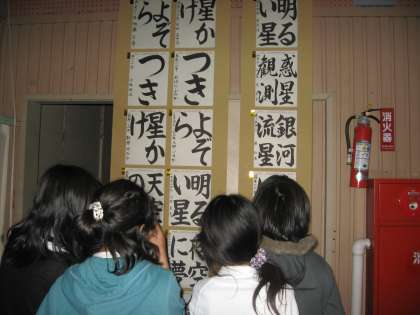 明る
い星
惑星
観測
銀河
流星
星か
つき
よぞ
ら
明る
い星
夜空
に夢
よぞ
ら
つき
星か
け
天空
の
消火器
消